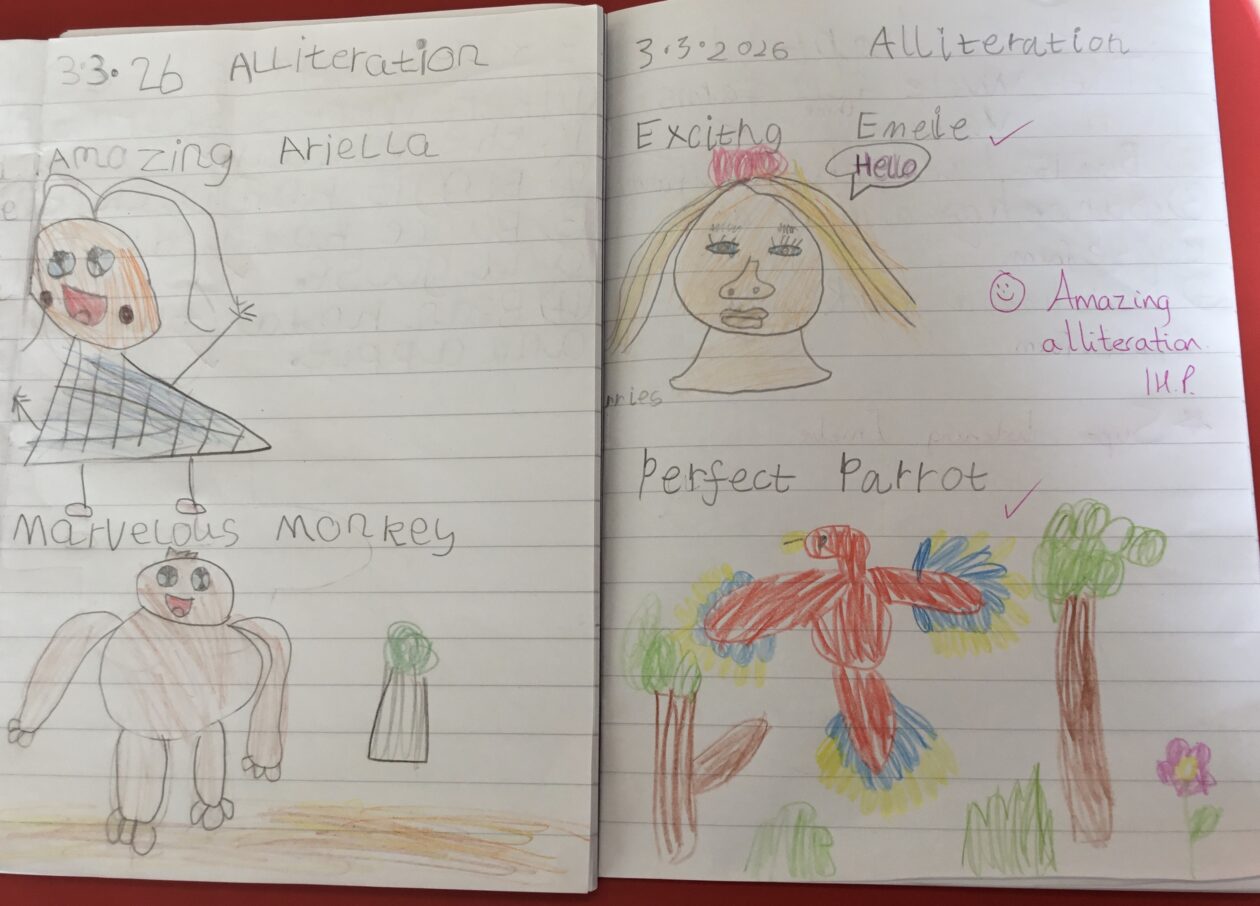 3.3.26 ALLiteration
Amazing AriELLA
MarvELous MONKEY
3.3.2026 Alliteration
Excithg Emelie ✓
Hello
Amazing
alliteration.
1H.P.
nries
Perfect Parrot ✓